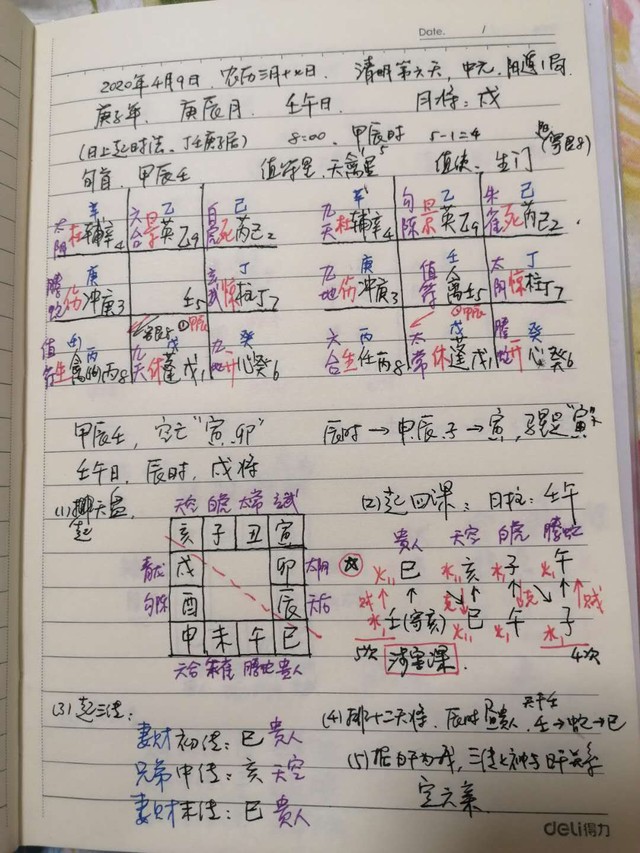 Date. /
2020年4月9日，农历三月十七日． 清明第六天，中元，阳遁1局．
庚子年， 庚辰月， 壬午日． 月将：戌
(日上起时法，丁壬庚子居) 8:00, 甲辰时 5-1=4
旬首，甲辰壬 值符星，天禽星5 值使，生门 (寄艮8)
太阴 杜 辛 辅辛4 六合 景 乙 英乙9 白虎 死 己 芮己2
螣蛇 伤 庚 冲庚3 壬5 玄武 惊 丁 柱丁7
寄艮8
值符 生 丙 禽 任丙8 九天 休 戊 蓬戊1 九地 开 癸 心癸6
九天 杜 辛 辅辛4 勾陈 景 乙 英乙9 朱雀 死 己 芮己2
九地 伤 庚 冲庚3 值符 壬 禽壬5 太阴 惊 丁 柱丁7
六合 生 丙 任丙8 太常 休 戊 蓬戊1 螣蛇 开 癸 心癸6
甲辰壬，空亡"寅、卯" 辰时→申.辰.子→寅，马是"寅"
壬午日，辰时，戌将
(1) 排天盘，起
天空 白虎 太常 玄武
亥 子 丑 寅
青龙 戌 卯 太阴
勾陈 酉 辰 天后
申 未 午 巳
六合 朱雀 螣蛇 贵人
(2) 起四课： 日柱：壬午
贵人 天空 白虎 螣蛇
火 巳 水 亥 水 子 火 午
贼 克 克 贼
水 壬(寄亥) 火 巳 午 水 子
5次 涉害课． 4次
(3) 起三传：
妻财 初传：巳 贵人
兄弟 中传：亥 天空
妻财 末传：巳 贵人
(4) 排十二天将，辰时 昼贵人，天干壬 壬→ →巳
(5) 据日干为我，三传之神与日干关系
定六亲
deli得力